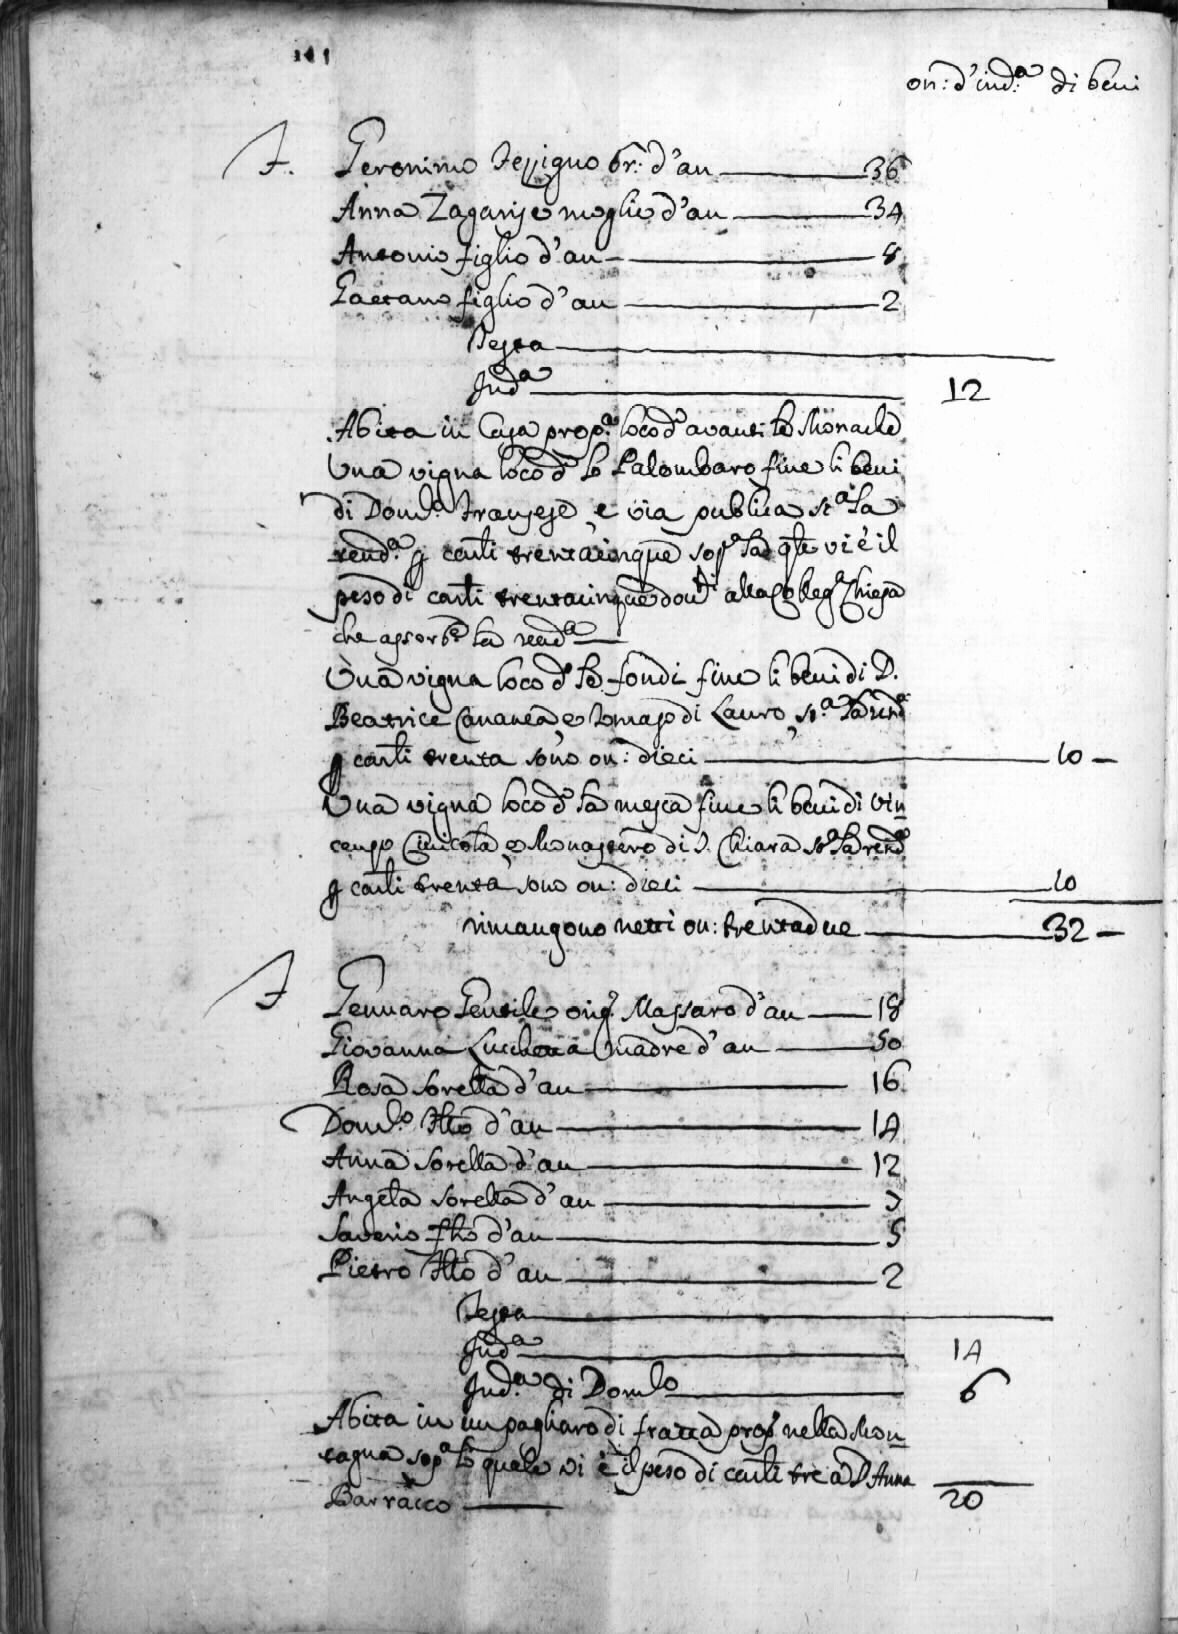 on: d'ind:a di beni
F. Geronimo br: d'an 36
Anna Zagarise moglie d'an 34
Antonio figlio d'an 8
Gaetano figlio d'an 2
Testa
Ind.a 12
Abita in Casa prop.a loco d.o avanti le Monache
Una vigna loco d.o lo Palombaro fine li beni
di Dom.o Franzese, e via publica st.a la
rend.a p carli trentacinque sop.a la qle vi è il
peso di carli trentacinque alla Colleg.a Chiesa
che assorbe la rend.a
Una vigna loco d.o le fondi fine li beni di D.
Beatrice Cananea, e Tomaso di Lauro, st.a la rend.a
p carli trenta sono on: dieci 10
Una vigna loco d.o la mesca fine li beni di Vin
cenzo Cimicola, e Monastero di S. Chiara st.a la rend.a
p carli trenta sono on: dieci 10
rimangono netti on: trentadue 32
F Gennaro Gentile Massaro d'an 18
Giovanna madre d'an 50
Rosa sorella d'an 16
Dom.co fllo d'an 14
Anna sorella d'an 12
Angela sorella d'an
Saverio fllo d'an 5
Pietro fllo d'an 2
Testa
Ind.a 14
Ind.a di Dom.co 6
Abita in un pagliaro di fratta prop.o nella Mon
tagna sop.a lo quale vi è il peso di carli tre a D. Anna
Barracco 20